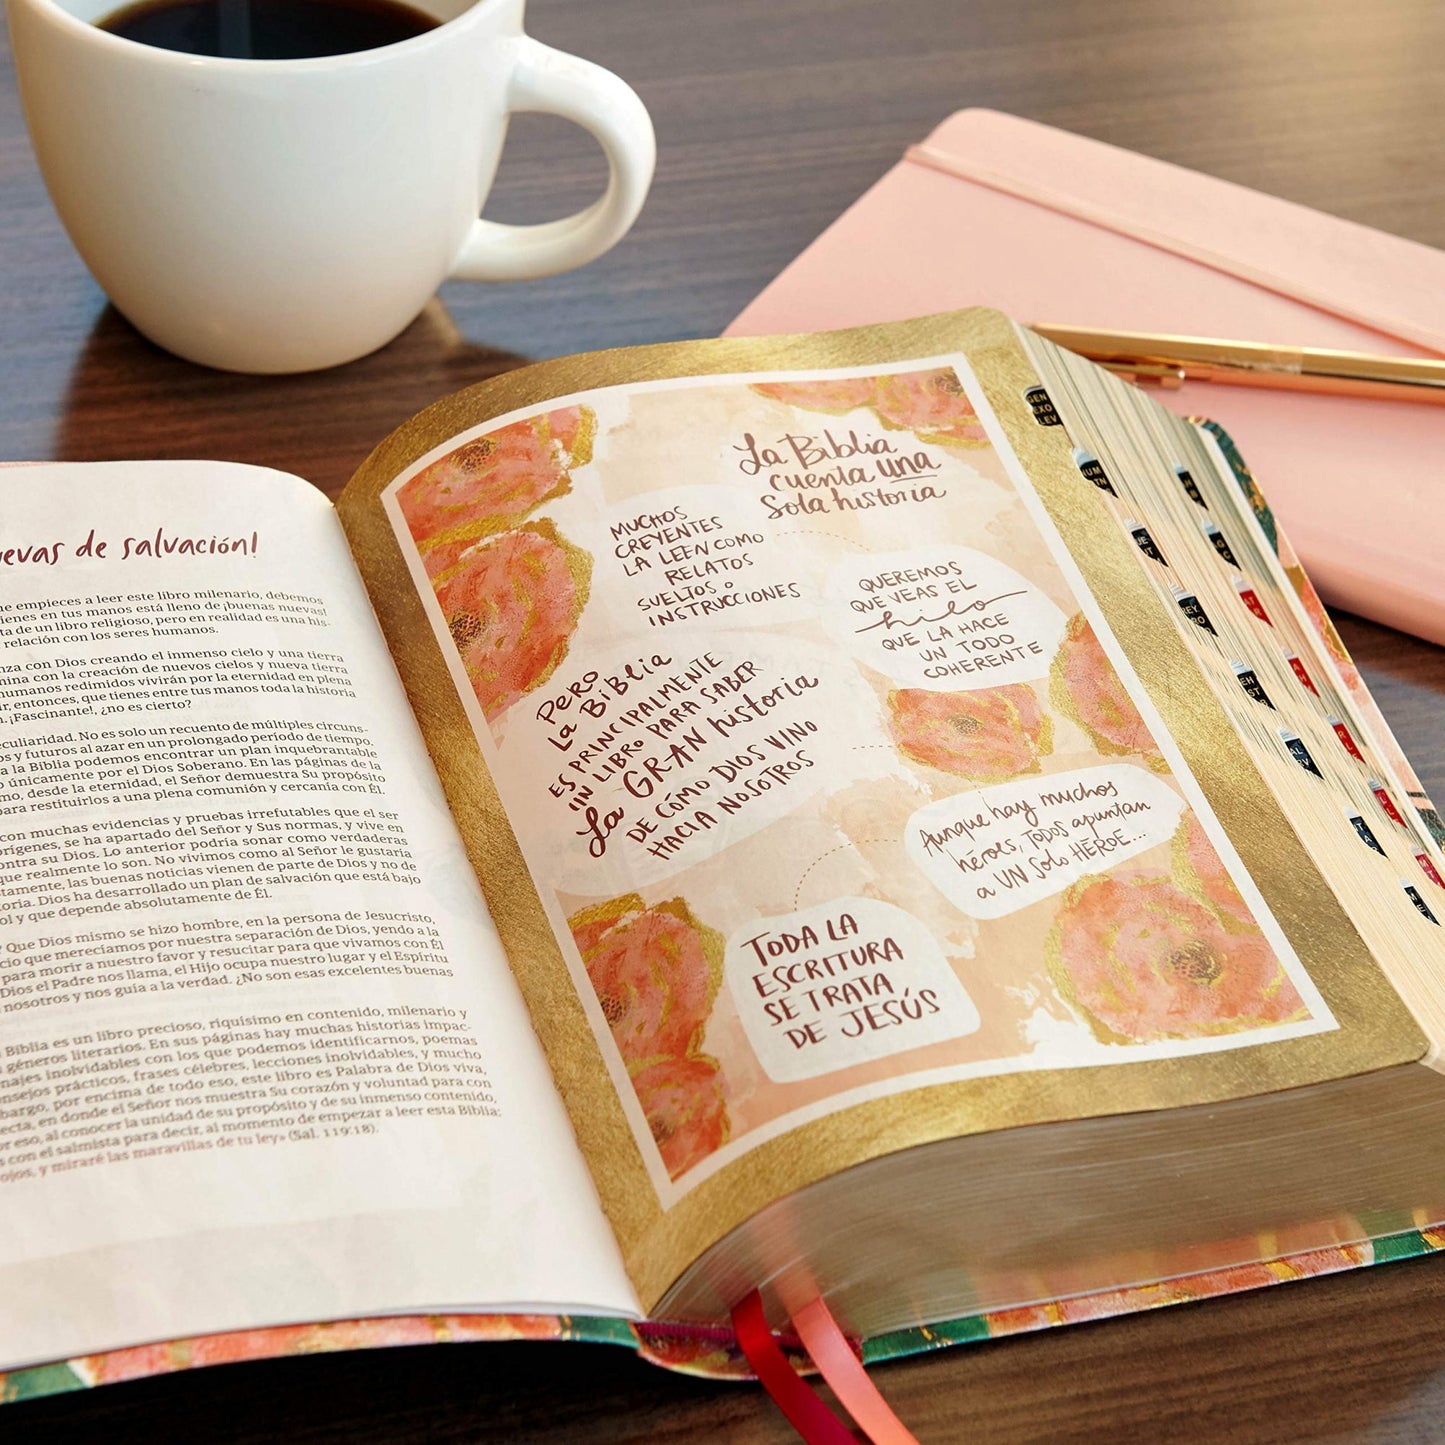 evas de salvación!
empieces a leer este libro milenario, debemos
tienes en tus manos está lleno de ¡buenas nuevas!
ta de un libro religioso, pero en realidad es una his-
relación con los seres humanos.
nza con Dios creando el inmenso cielo y una tierra
mina con la creación de nuevos cielos y nueva tierra
humanos redimidos vivirán por la eternidad en plena
ir, entonces, que tienes entre tus manos toda la historia
n. ¡Fascinante!, ¿no es cierto?
eculiaridad. No es solo un recuento de múltiples circuns-
os y futuros al azar en un prolongado período de tiempo.
a la Biblia podemos encontrar un plan inquebrantable
o únicamente por el Dios Soberano. En las páginas de la
mo, desde la eternidad, el Señor demuestra Su propósito
para restituirlos a una plena comunión y cercanía con Él.
con muchas evidencias y pruebas irrefutables que el ser
orígenes, se ha apartado del Señor y Sus normas, y vive en
ontra su Dios. Lo anterior podría sonar como verdaderas
que realmente lo son. No vivimos como al Señor le gustaría
stamente, las buenas noticias vienen de parte de Dios y no de
toria. Dios ha desarrollado un plan de salvación que está bajo
ol y que depende absolutamente de Él.
? Que Dios mismo se hizo hombre, en la persona de Jesucristo,
cio que merecíamos por nuestra separación de Dios, yendo a la
para morir a nuestro favor y resucitar para que vivamos con Él
Dios el Padre nos llama, el Hijo ocupa nuestro lugar y el Espíritu
nosotros y nos guía a la verdad. ¿No son esas excelentes buenas
Biblia es un libro precioso, riquísimo en contenido, milenario y
géneros literarios. En sus páginas hay muchas historias impac-
najes inolvidables con los que podemos identificarnos, poemas
onsejos prácticos, frases célebres, lecciones inolvidables, y mucho
bargo, por encima de todo eso, este libro es Palabra de Dios viva,
ecta, en donde el Señor nos muestra Su corazón y voluntad para con
or eso, al conocer la unidad de su propósito y de su inmenso contenido,
s con el salmista para decir, al momento de empezar a leer esta Biblia:
ojos, y miraré las maravillas de tu ley» (Sal. 119:18).
La Biblia
cuenta una
Sola historia
MUCHOS
CREYENTES
LA LEEN COMO
RELATOS
SUELTOS o
INSTRUCCIONES
QUEREMOS
QUE VEAS EL
hilo
QUE LA HACE
UN TODO
COHERENTE
PERO
La BiBLia
ES PRINCIPALMENTE
UN LIBRO PARA SABER
La GRAN historia
DE CÓMO DIOS VINO
HACIA NOSOTROS
Aunque hay muchos
héroes, TODOS apuntan
a UN Solo HÉROE...
TODA LA
ESCRITURA
SE TRATA
DE JESÚS
GEN
EXO
LEV